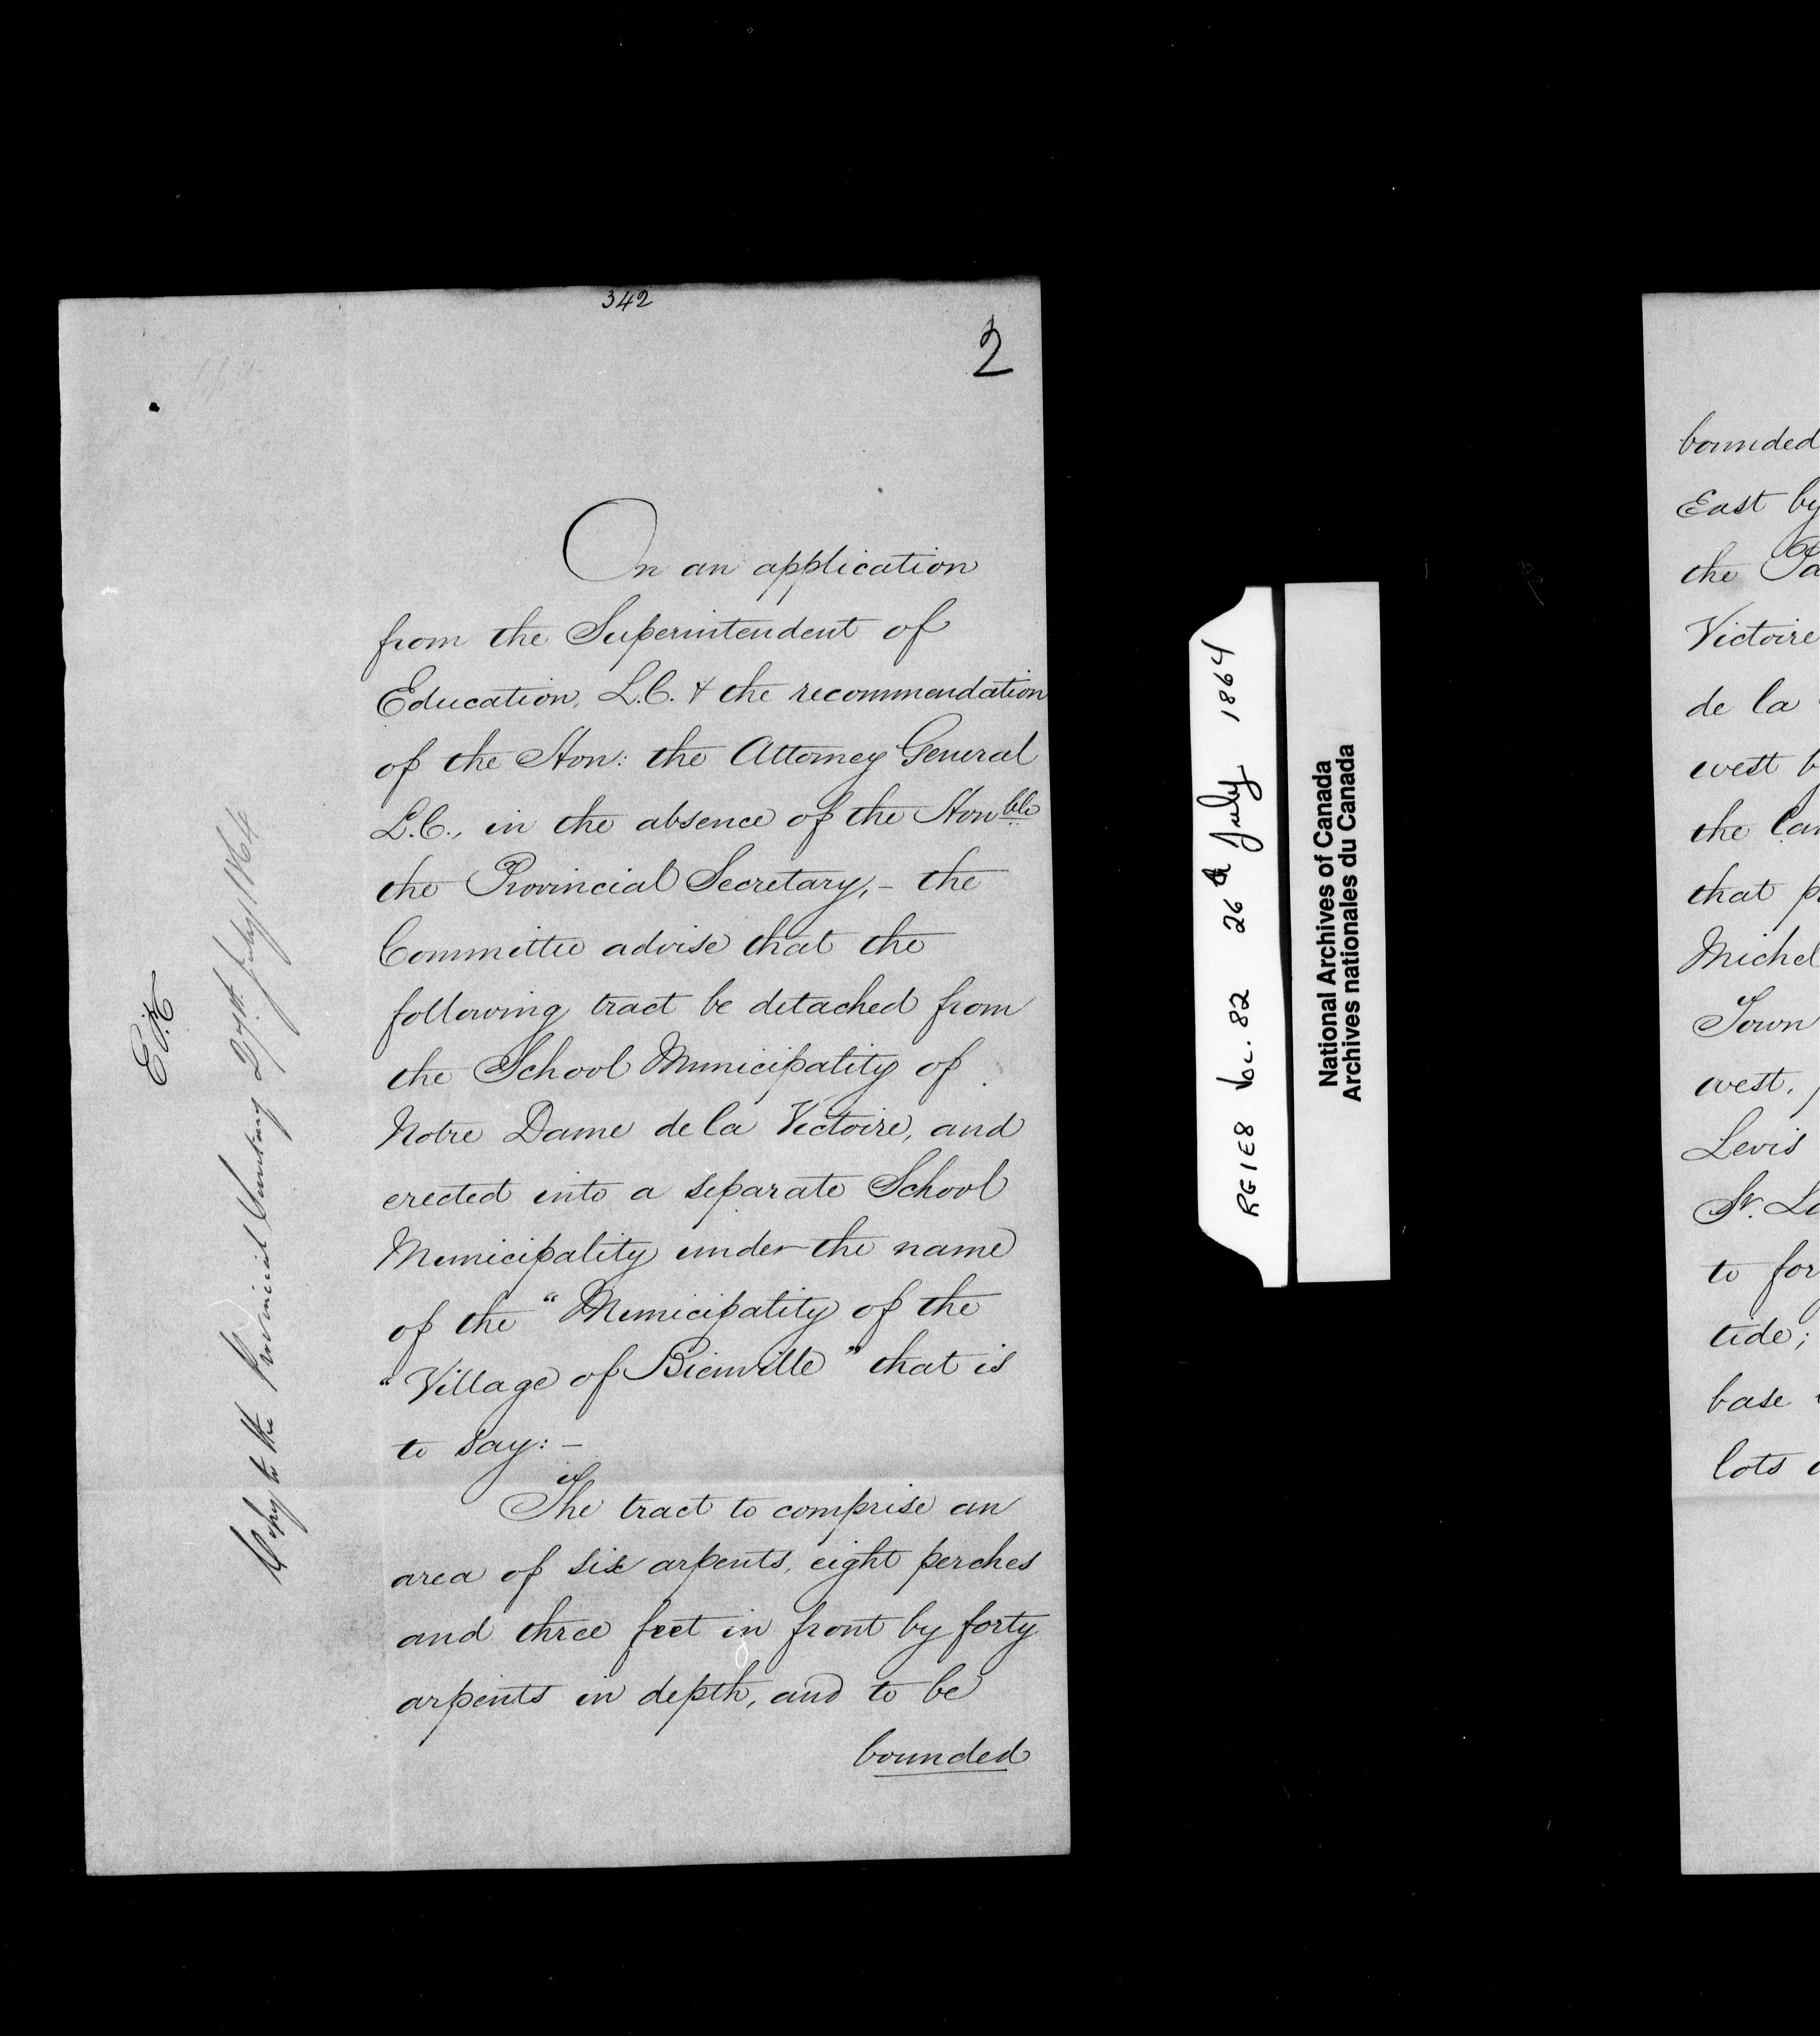 342
2
On an application
from the Superintendent of
Education, L.C. & the recommendation
of the Hon: the Attorney General
L.C., in the absence of the Honble
the Provincial Secretary,- the
Committee advise that the
following tract be detached from
the School Municipality of
Notre Dame de la Victoire, and
erected into a separate School
Municipality under the name
of the "Municipality of the
"Village of Bienville" that is
to say:-
The tract to comprise an
area of six arpents, eight perches
and three feet in front by forty
arpents in depth, and to be
bounded
Copy to the Provincial Secretary 27th July/1864
RG1E8 Vol. 82 26th July 1864
National Archives of Canada
Archives nationales du Canada
bounded
East by
the Pa
Victoire
de la
west b
the Can
that p
Michel
Town
west,
Levis
St. L
to for
tide;
base
lots